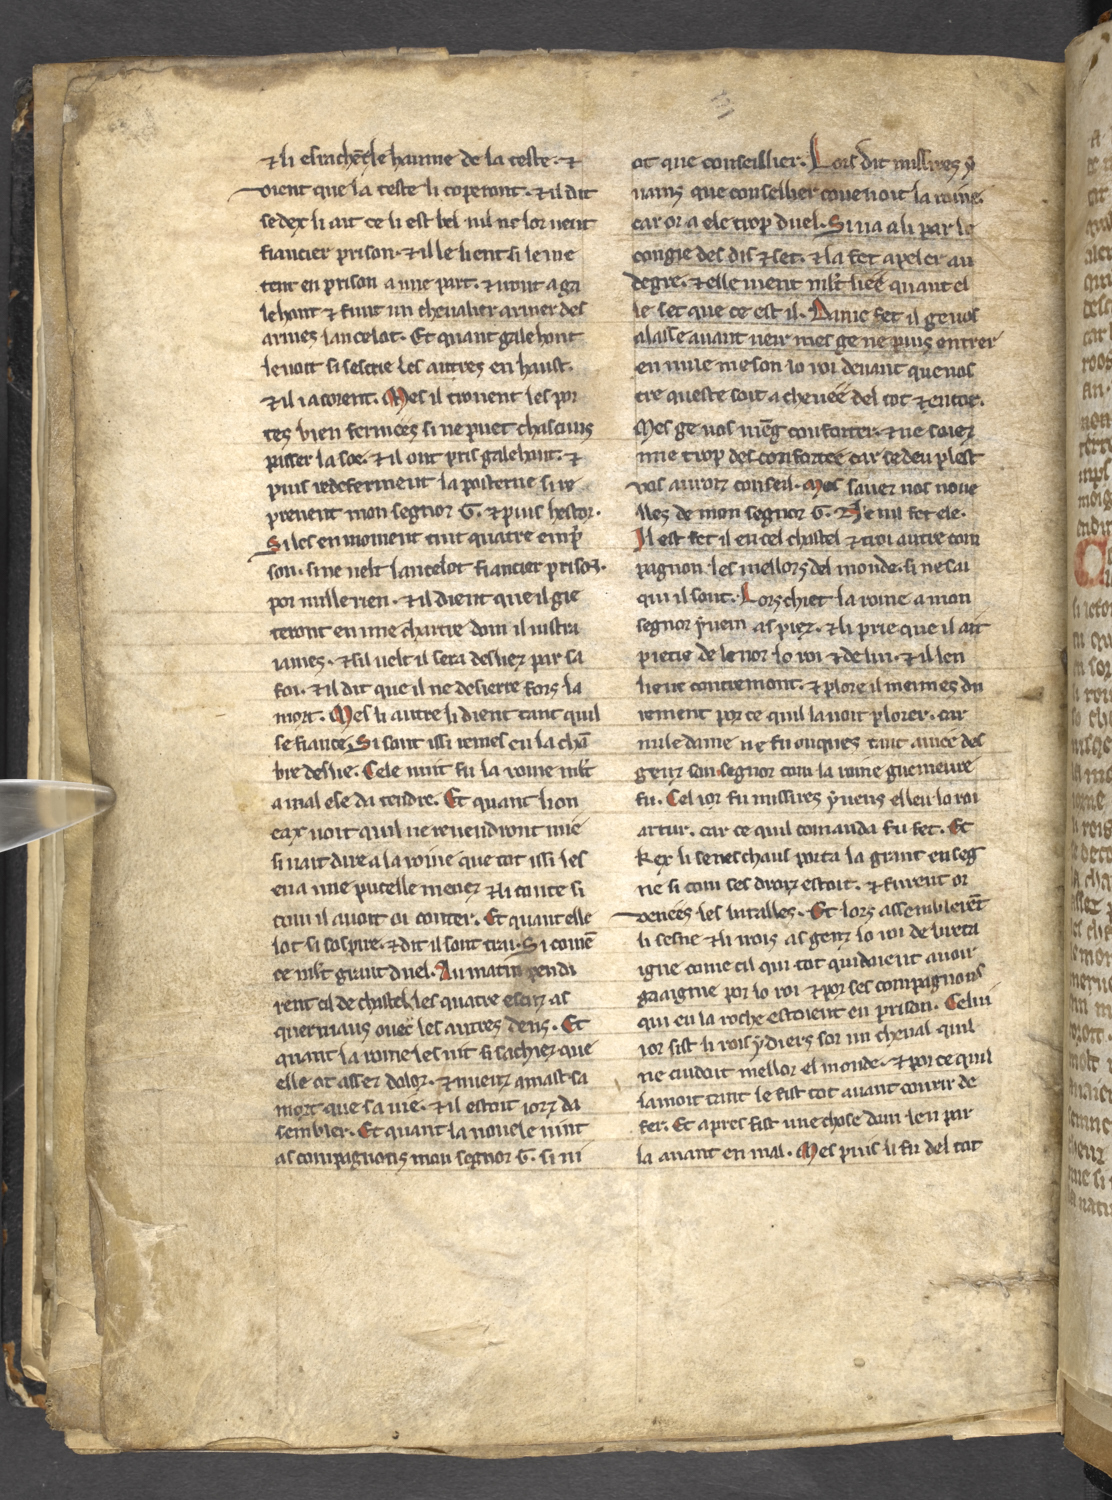 ⁊ li esrachẽt le haume de la teste. ⁊
dient que la teste li coperont. ⁊ il dit
se dex li ait ce li est bel nil ne lor veut
fiancier prison. ⁊ il le lient si le me
tent en prison a une part. ⁊ vont a ga
lehout ⁊ funt un chevalier armer des
armes lancelot. Et quant galehout
le voit si sescrie les autres en haust.
⁊ il i acorent. Mes il trovent les por
tes bien fermees si ne puet chascuns
passer la soe. ⁊ il ont pris galehout. ⁊
puis redeferment la posterne si re
prenent mon segnor G. ⁊ puis hestor.
Si les en moinent tout quatre em pͥ
son. si ne velt lancelot fiancier prison.
por nulle rien. ⁊ il dient que il gie
teront en une chartre dom il nistra
iames. ⁊ sil velt il sera desliez par sa
foi. ⁊ il dit que il ne desierre fors la
mort. Mes li autre li dient tant quil
se fiance. Si sont issi remes en la chã
bre deslie. Cele nuit fu la roine mlt
a mal ese da tendre. Et quant lion
eax voit quil ne revendront mie
si vait dire a la roine que tot issi les
en a une pucelle menez ⁊ li conte si
com il avoit oi conter. Et quant elle
lot si sospire. ⁊ dit il sont trai. Si comẽ
ce mlt grant duel. Au matin pendi
rent cil de chastel les quatre escuz as
querniaus ovec les autres dens. Et
quant la roine les vit si sachiez que
elle ot assez dolor. ⁊ mieuz amast sa
mort que sa vie. ⁊ il estoit iorz da
sembler. Et quant la novele vint
as compagnons mon segnor G. si ni
ot que conseillier. Lors dit missires y
vains que conseillier covenoit la roine.
car or a ele trop duel. Si va a li par lo
congie des dis ⁊ set. ⁊ la fet apeler au
degre. ⁊ elle vient mlt liee quant el
le set que ce est il. Dame fet il ge vos
alasse avant veir mes ge ne puis entrer
en nule meson lo roi devant que nos
tre queste soit achevee del tot ⁊ entor.
Mes ge vos vieg conforter. ⁊ ne soiez
mie trop desconfortee car se deu plest
vos avroiz conseil. Mes savez vos nove
lles de mon segnor G. Nenil fet ele.
Il est fet il en cel chastel ⁊ troi autre com
pagnon les mellors del monde. si ne sai
qui il sont. Lors chiet la roine a mon
segnor yvein as piez. ⁊ li prie que il ait
pietie de lenor lo roi ⁊ de lui. ⁊ il len
lieve contremont. ⁊ plore il meimes du
rement por ce quil la voit plorer. car
nule dame ne fu onques tant amee des
genz son segnor com la roine guenievre
fu. Cel ior fu missires yveins el leu lo roi
artur. car ce quil comanda fu fet. Et
Kex li seneschaus porta la grant enseg
ne si com ses droiz estoit. ⁊ furent or
denees les batalles. Et lors assemblerẽt
li sesne ⁊ li irois as genz lo roi de breta
igne come cil qui tot quidoient avoir
gaaignie por lo roi ⁊ por ses compagnons
qui en la roche estoient en prison. Celui
ior sist li rois ydiers sor un cheval quil
ne cuidoit mellor el monde. ⁊ por ce quil
lamoit tant le fist tot avant covrir de
fer. Et apres fist une chose dom len par
la avant en mal. Mes puis li fu del tot